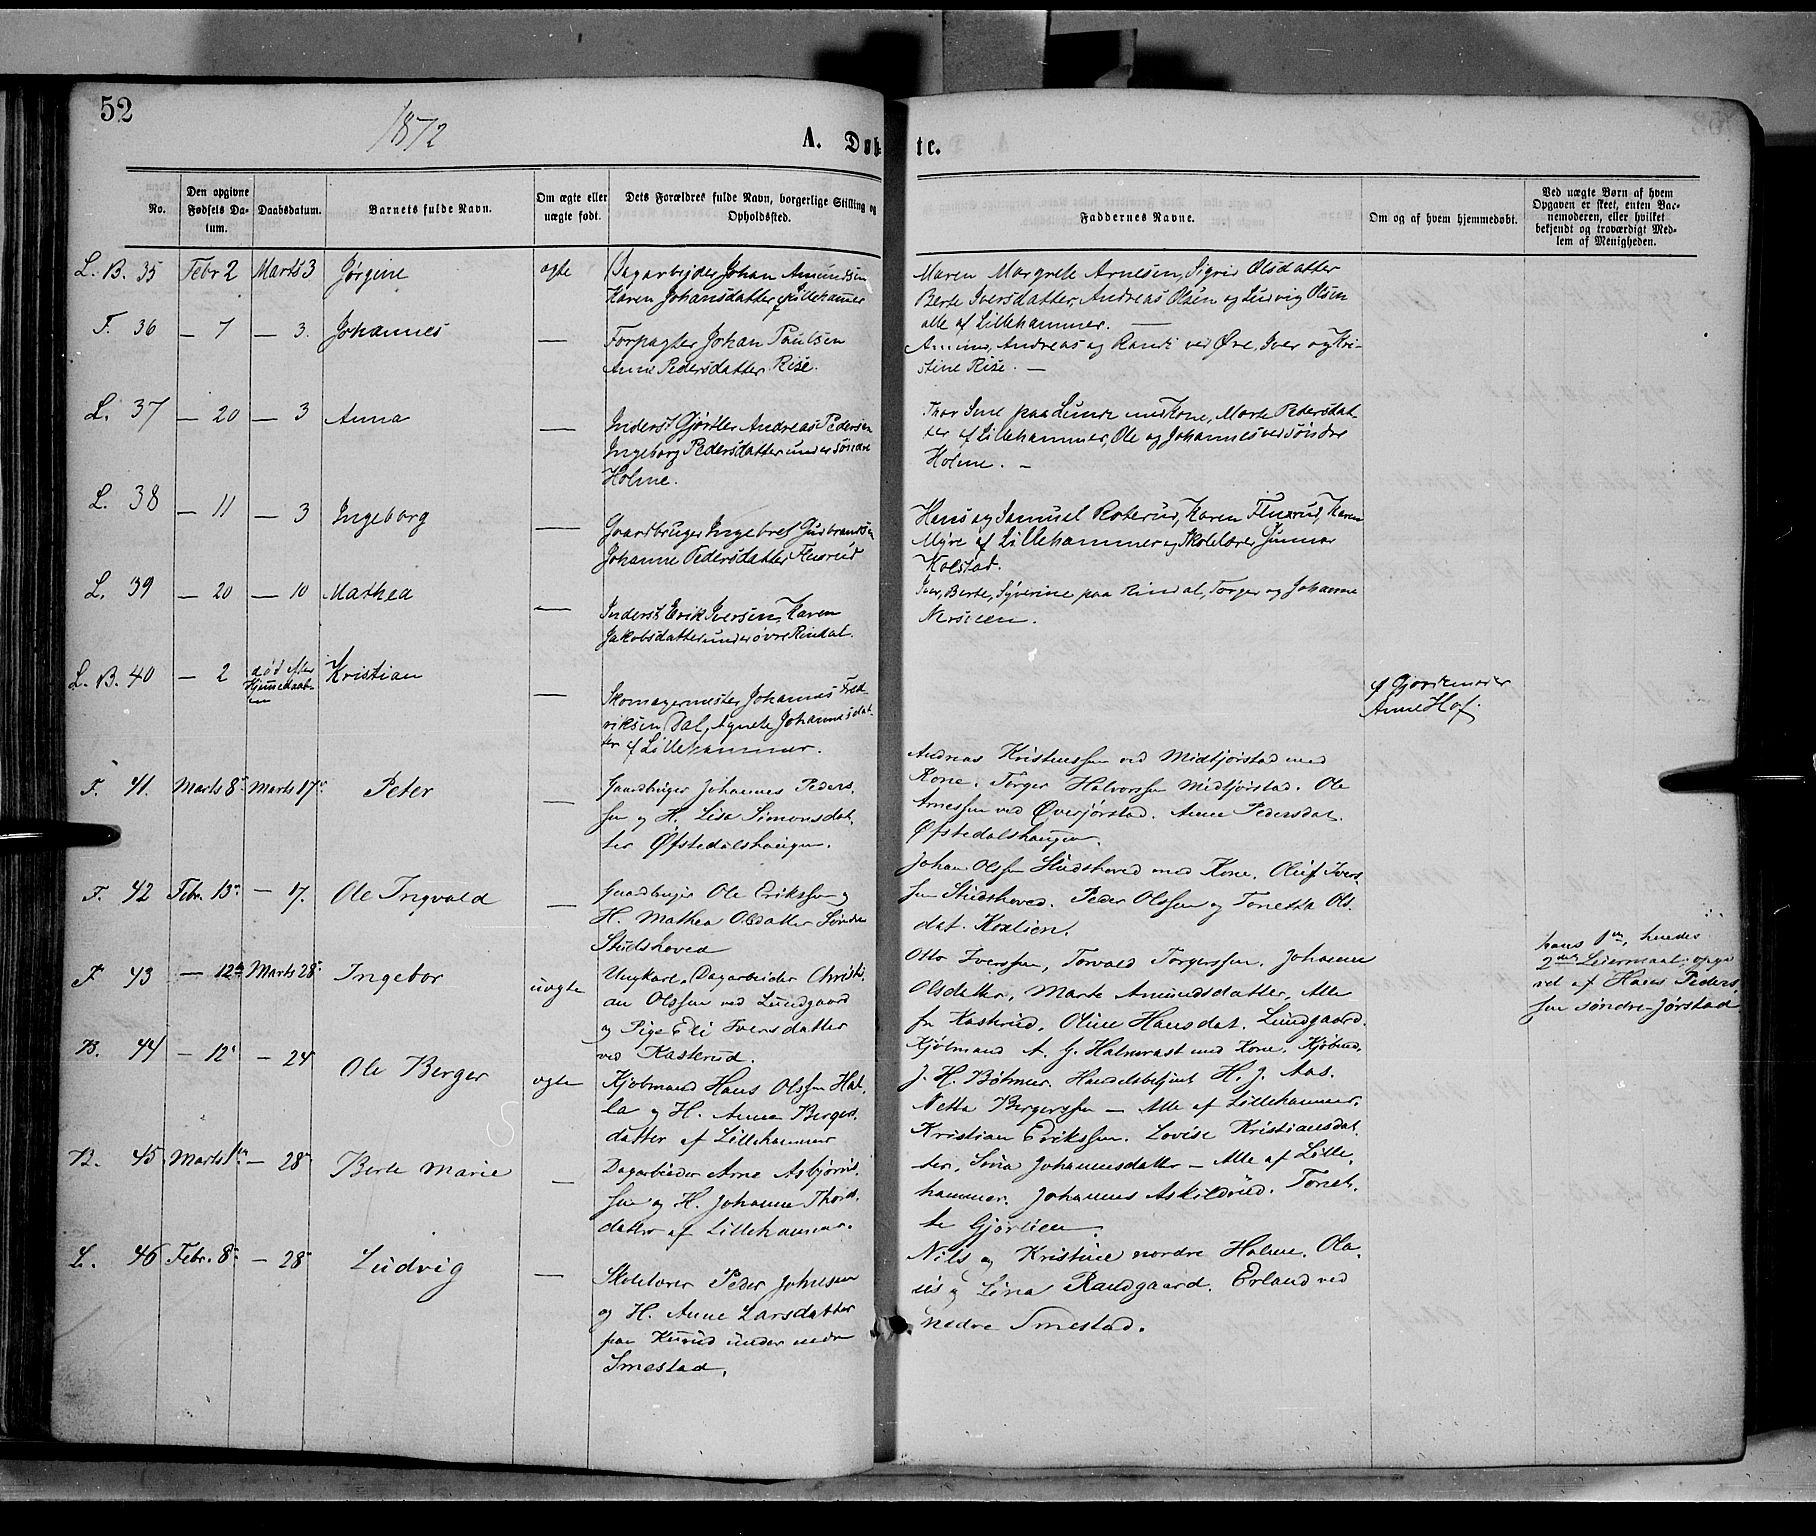 52
1872
A. Døbte.
No.
Den opgivne Fødsels Datum.
Daabsdatum.
Barnets fulde Navn.
Om ægte eller uægte født.
Dets Forældres fulde Navn, borgerlige Stilling og Opholdssted.
Faddernes Navne.
Om og af hvem hjemmedøbt.
Ved uægte Børn af hvem Opgaven er skeet, enten Barnemoderen, eller hvilket bekjendt og troværdigt Medlem af Menigheden.
L. B. 35 Febr 2 Marts 3 Jørgine ægte
Dagarbejder Johan Amundsen
Karen Johansdatter af Lillehammer
Maren Margrete Arnesen, Sigrid Olsdatter
Berte Iversdatter, Andreas Olsen og Ludvig Olsen
alle af Lillehammer. —
F. 36 — 7 — 3. Johannes —
Forpagter Johan Paulsen
Anne Pedersdatter Rise.
Andreas og Randi ved Øvre, Iver og Kri-
stine Rise. —
L. 37 — 20 — 3 Anna —
Inderst Gjørtler Andreas Pedersen
Ingeborg Pedersdatter under søndre
Holme.
Thor paa Lunde med Kone, Marte Pedersdat
ter af Lillehammer, Ole og Johannes ved søndre
Holme. —
L. 38 — 11 — 3 Ingeborg —
Gaardbruger Ingebret Gudbrandsen
Johanne Pedersdatter Flusrud
Hans og Samuel Roterud, Karen Flusrud, Karen
Myre af Lillehammer og Skolelærer Gunnar
Kolstad.
L. 39 — 20 — 10 Mathea —
Inderst Erik Iversen, Karen
Jakobsdatter under øvre Rindal.
Iver, Berte, Syverine paa Rindal, Torger og Johanne
Nersveen.
L. B. 40 — 2 død efter Hjemmedaaben Kristian —
Skomagermester Johannes Fred-
riksen Dal, Agnete Johannesdat-
ter af Lillehammer.
af Gjordemoder
Anne Hof.
F. 41. Marts 8de Marts 17de Peter —
Gaardbruger Johannes Peders-
sen og H. Lisa Simonsdat-
ter Øfstedalshaugen.
Andreas Kristianssen ved Midtjørstad med
Kone. Torger Halvorssen Midtjørstad. Ole
Arnessen ved Øverjørstad. Anne Pedersdat.
Øfstedalshaugen.
F. 42 Febr. 13de — 17. Ole Ingvald —
Gaardbruger Ole Erikssen og
H. Mathea Olsdatter Søndre
Studshoved
Johan Olssen Studshoved med Kone. Oluf Ivers-
sen Studshoved. Peder Olssen og Tonetta Ols-
dat. Kvalien.
F. 43 — 12te Marts 28de Ingebor uægte
Ungkarl, Dagarbeider Christi-
an Olssen ved Lundgaard
og Pige Eli Iversdatter
ved Kasterud.
Otto Iverssen, Torvald Torgerssen, Johanne
Olsdatter, Marte Amundsdatter, Alle
fr Kasterud. Oline Hansdat. Lundgaard.
hans 1ste, hendes
2det Leiermaal; opgi
vet af Hans Peders-
sen søndre-Jørstad
B. 44 — 12te — 24 Ole Berger ægte
Kjøbmand Hans Olssen Hal-
la og H. Anne Bergers-
datter af Lillehammer
Kjøbmand A. G. Halmrast med Kone. Kjøbmd.
J. H. Bøhmer. Handelsbetjent H. J. Aas.
Netta Bergerssen — Alle af Lillehammer.
B. 45. Marts 1ste — 28de Berte Marie —
Dagarbeider Arne Asbjørns-
sen og H. Johanne Thords-
datter af Lillehammer.
Kristian Erikssen. Lovise Kristiansdat-
ter. Sina Johannesdatter — Alle af Lille-
hammer. Johannes Askildrud. Tonet-
te Gjørlien.
L. 46 Febr. 8de — 28de Ludvig —
Skolelærer Peder Johnssen
og H. Anne Larsdatter
paa under nedre
Smestad.
Nils og Kristine nordre Holme. Ola-
us og Lina Randgaard. Erland ved
nedre Smestad.